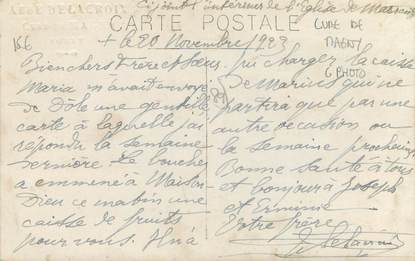 Ci joint intérieur de l'Eglise de
CARTE POSTALE
ABBÉ DELACROIX
CURE DE
MAGNY
6 PHOTO
156
+ le 20 Novembre 1923
Bien chers Frère et Sœur.
Maria m'avait envoyé
de Dole une gentille
carte à laquelle j'ai
répondu la semaine
dernière. Le boucher
a emmené à Maison-
Dieu ce matin une
caisse de fruits
pour vous. Il n'a
pu charger la caisse
de Marius qui ne
partira que par une
autre occasion ou
la semaine prochaine
Bonne santé à tous
et bonjour à Joseph
et Erminie
Votre frère